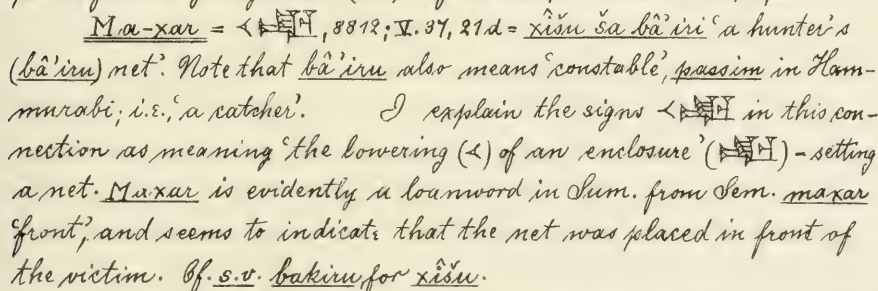 Ma-xar = 𒌋, 8812; V. 37, 21d = xîšu ša bâ'iri 'a hunter's
(bâ'iru) net'. Note that bâ'iru also means 'constable', passim in Ham-
murabi; i.e., 'a catcher'. I explain the signs 𒌋 in this con-
nection as meaning 'the lowering (𒌋) of an enclosure' () - setting
a net. Maxar is evidently a loanword in Sum. from Sem. maxar
'front', and seems to indicate that the net was placed in front of
the victim. Cf. s.v. bakiru for xîšu.